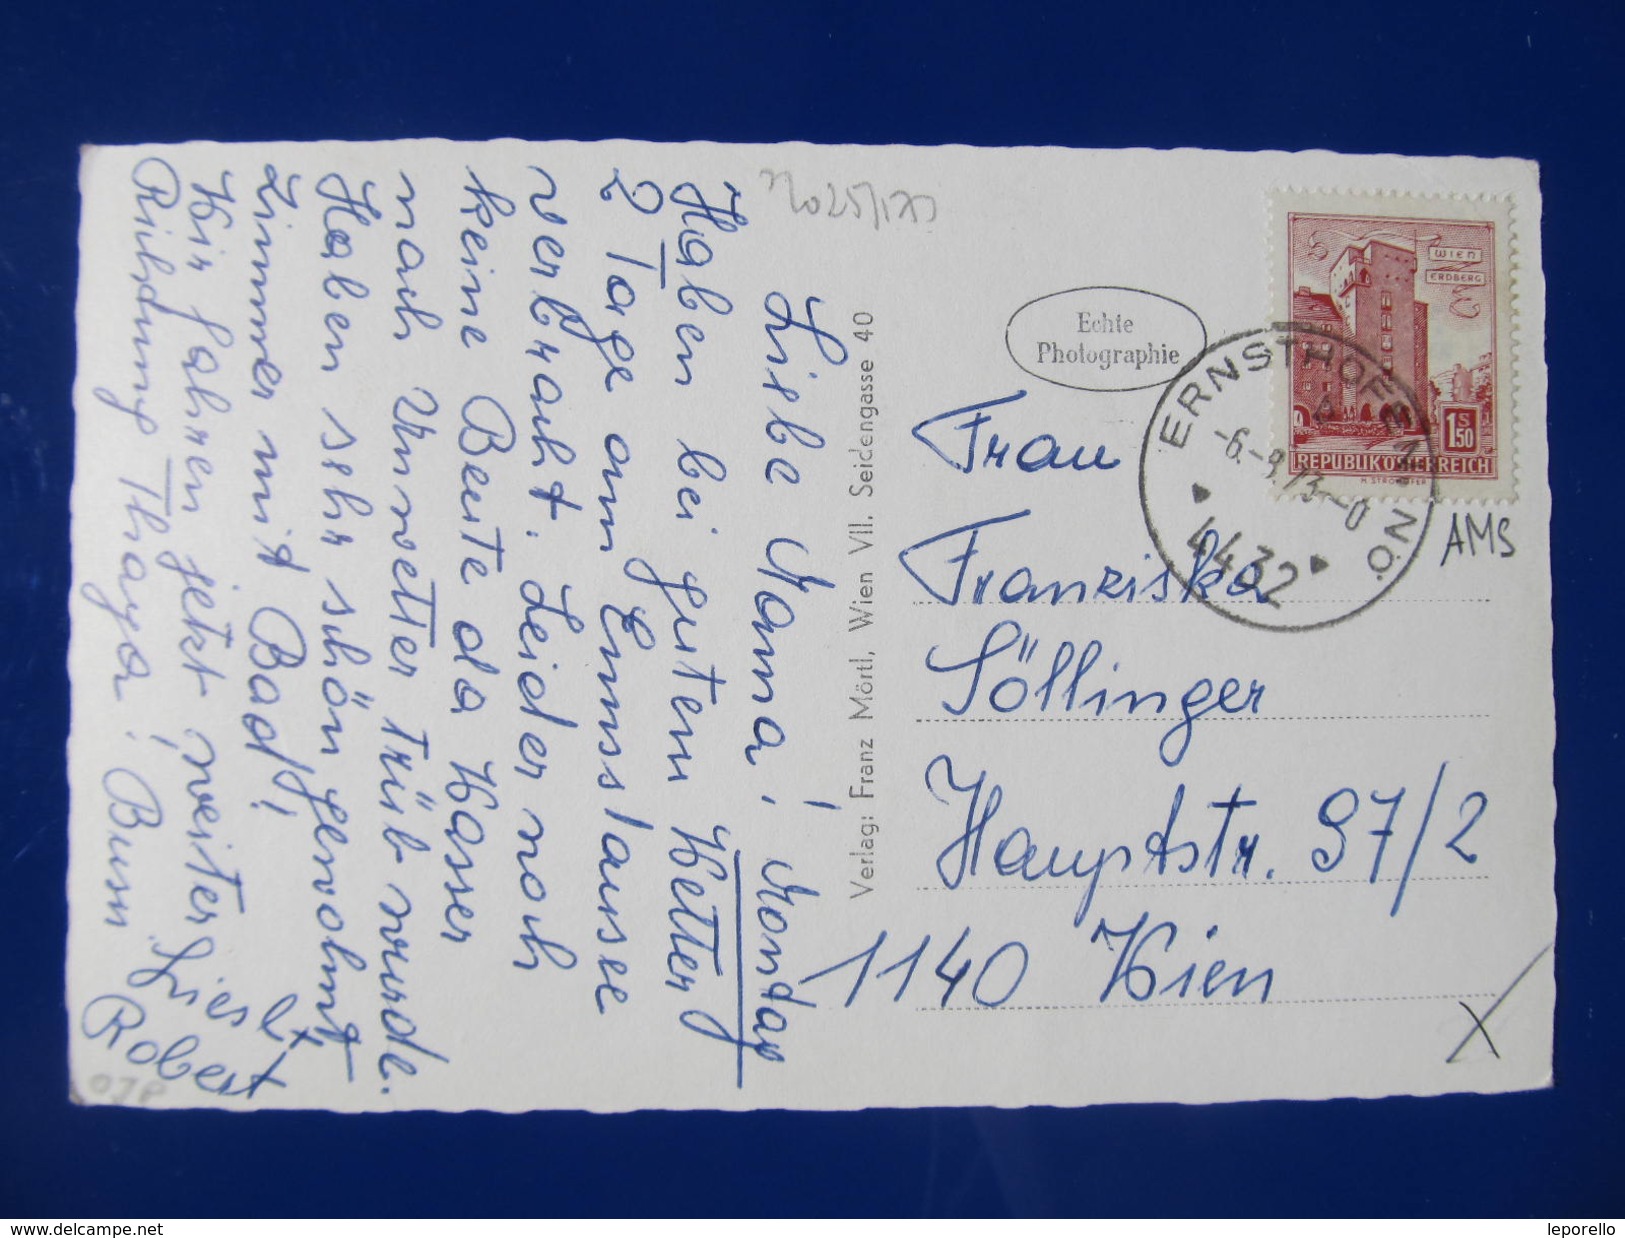 Liebe Mama! Montag
Haben bei gutem Wetter
2 Tage am Ennsstausee
verbracht. Leider noch
keine Beute da Wasser
nach Unwetter trüb wurde.
Haben sehr schön gewohnt,
Zimmer mit Bad!
Wir fahren jetzt weiter
Richtung Thaya! Bussi
Robert
Verlag: Franz Mörtl, Wien VII. Seidengasse 40
Echte
Photographie
WIEN
ERDBERG
1 S 50
REPUBLIK ÖSTERREICH
ERNSTHOFEN, N.Ö.
4432
AMS
Frau
Franziska
Söllinger
Hauptstr. 97/2
1140 Wien
X
Delcampe.net
leporello